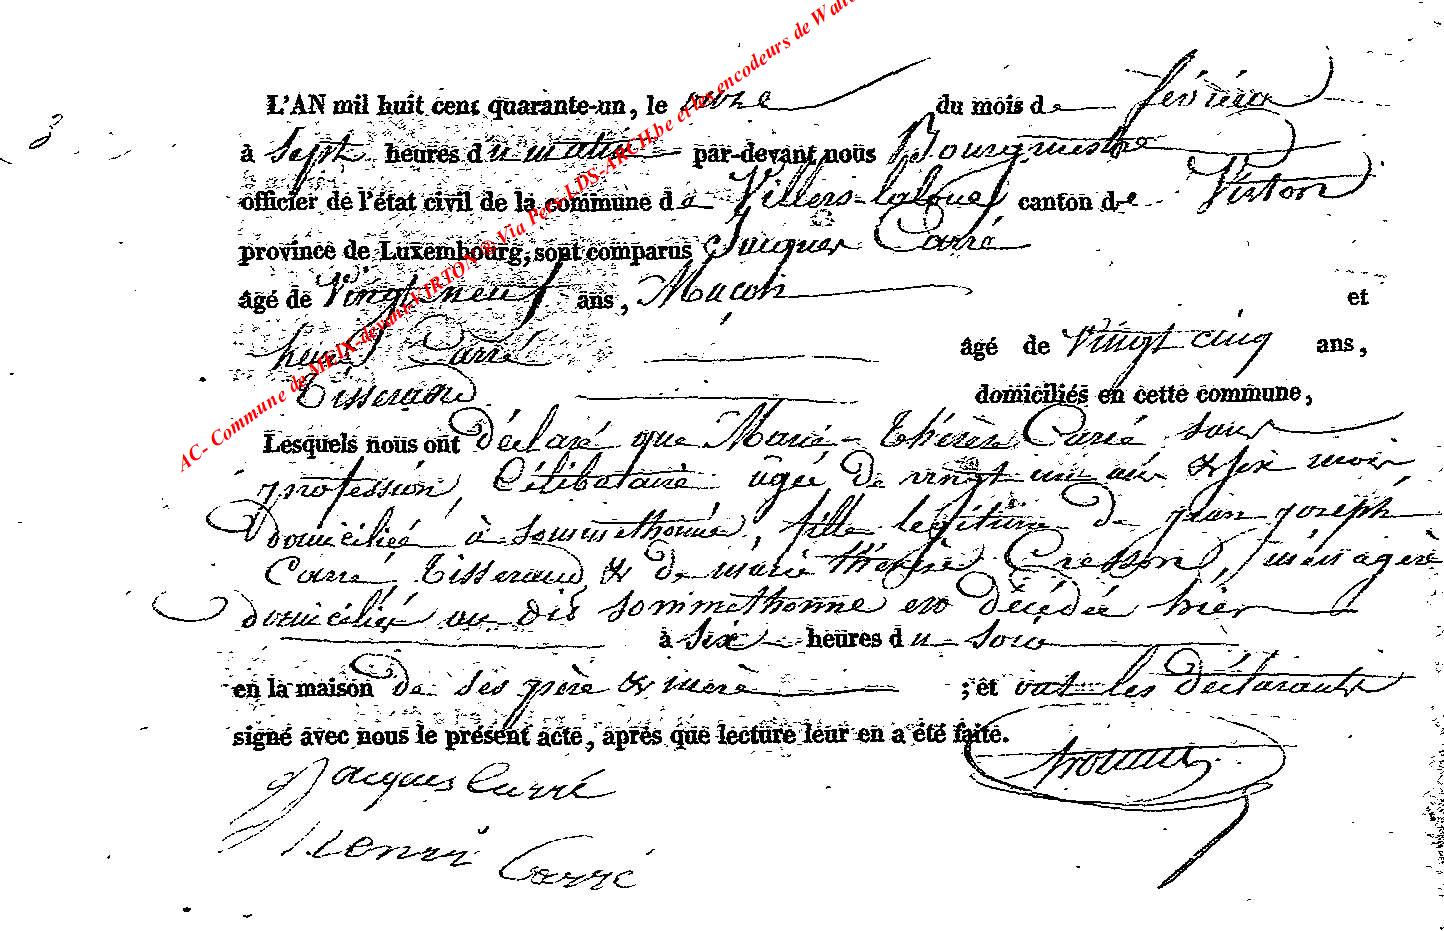 3
AC- Commune de MEIX-devant-VIRTON & Via Pecs-LDS-ARCH.be et les encodeurs de
L'AN mil huit cent quarante-un, le onze du mois de février
à sept heures du matin par-devant nous Bourgmestre
officier de l'état civil de la commune de Villers-laloue canton de Virton
province de Luxembourg, sont comparus Jacques Carré
âgé de vingt neuf ans, Maçon et
henri Carré âgé de vingt cinq ans,
Tisserand domiciliés en cette commune,
Lesquels nous ont déclaré que Marie-Thérèse Carré sans
profession, Célibataire âgée de vingt un ans & six mois
domiciliée à sommethonne, fille légitime de jean joseph
Carré, Tisserand & de marie thérèse Cresson, ménagère
domiciliés au dit sommethonne est décédée hier
à six heures du soir
en la maison de ses père & mère ; et ont les déclarants
signé avec nous le présent acte, après que lecture leur en a été faite.
Jacques Carré
Henri Carré